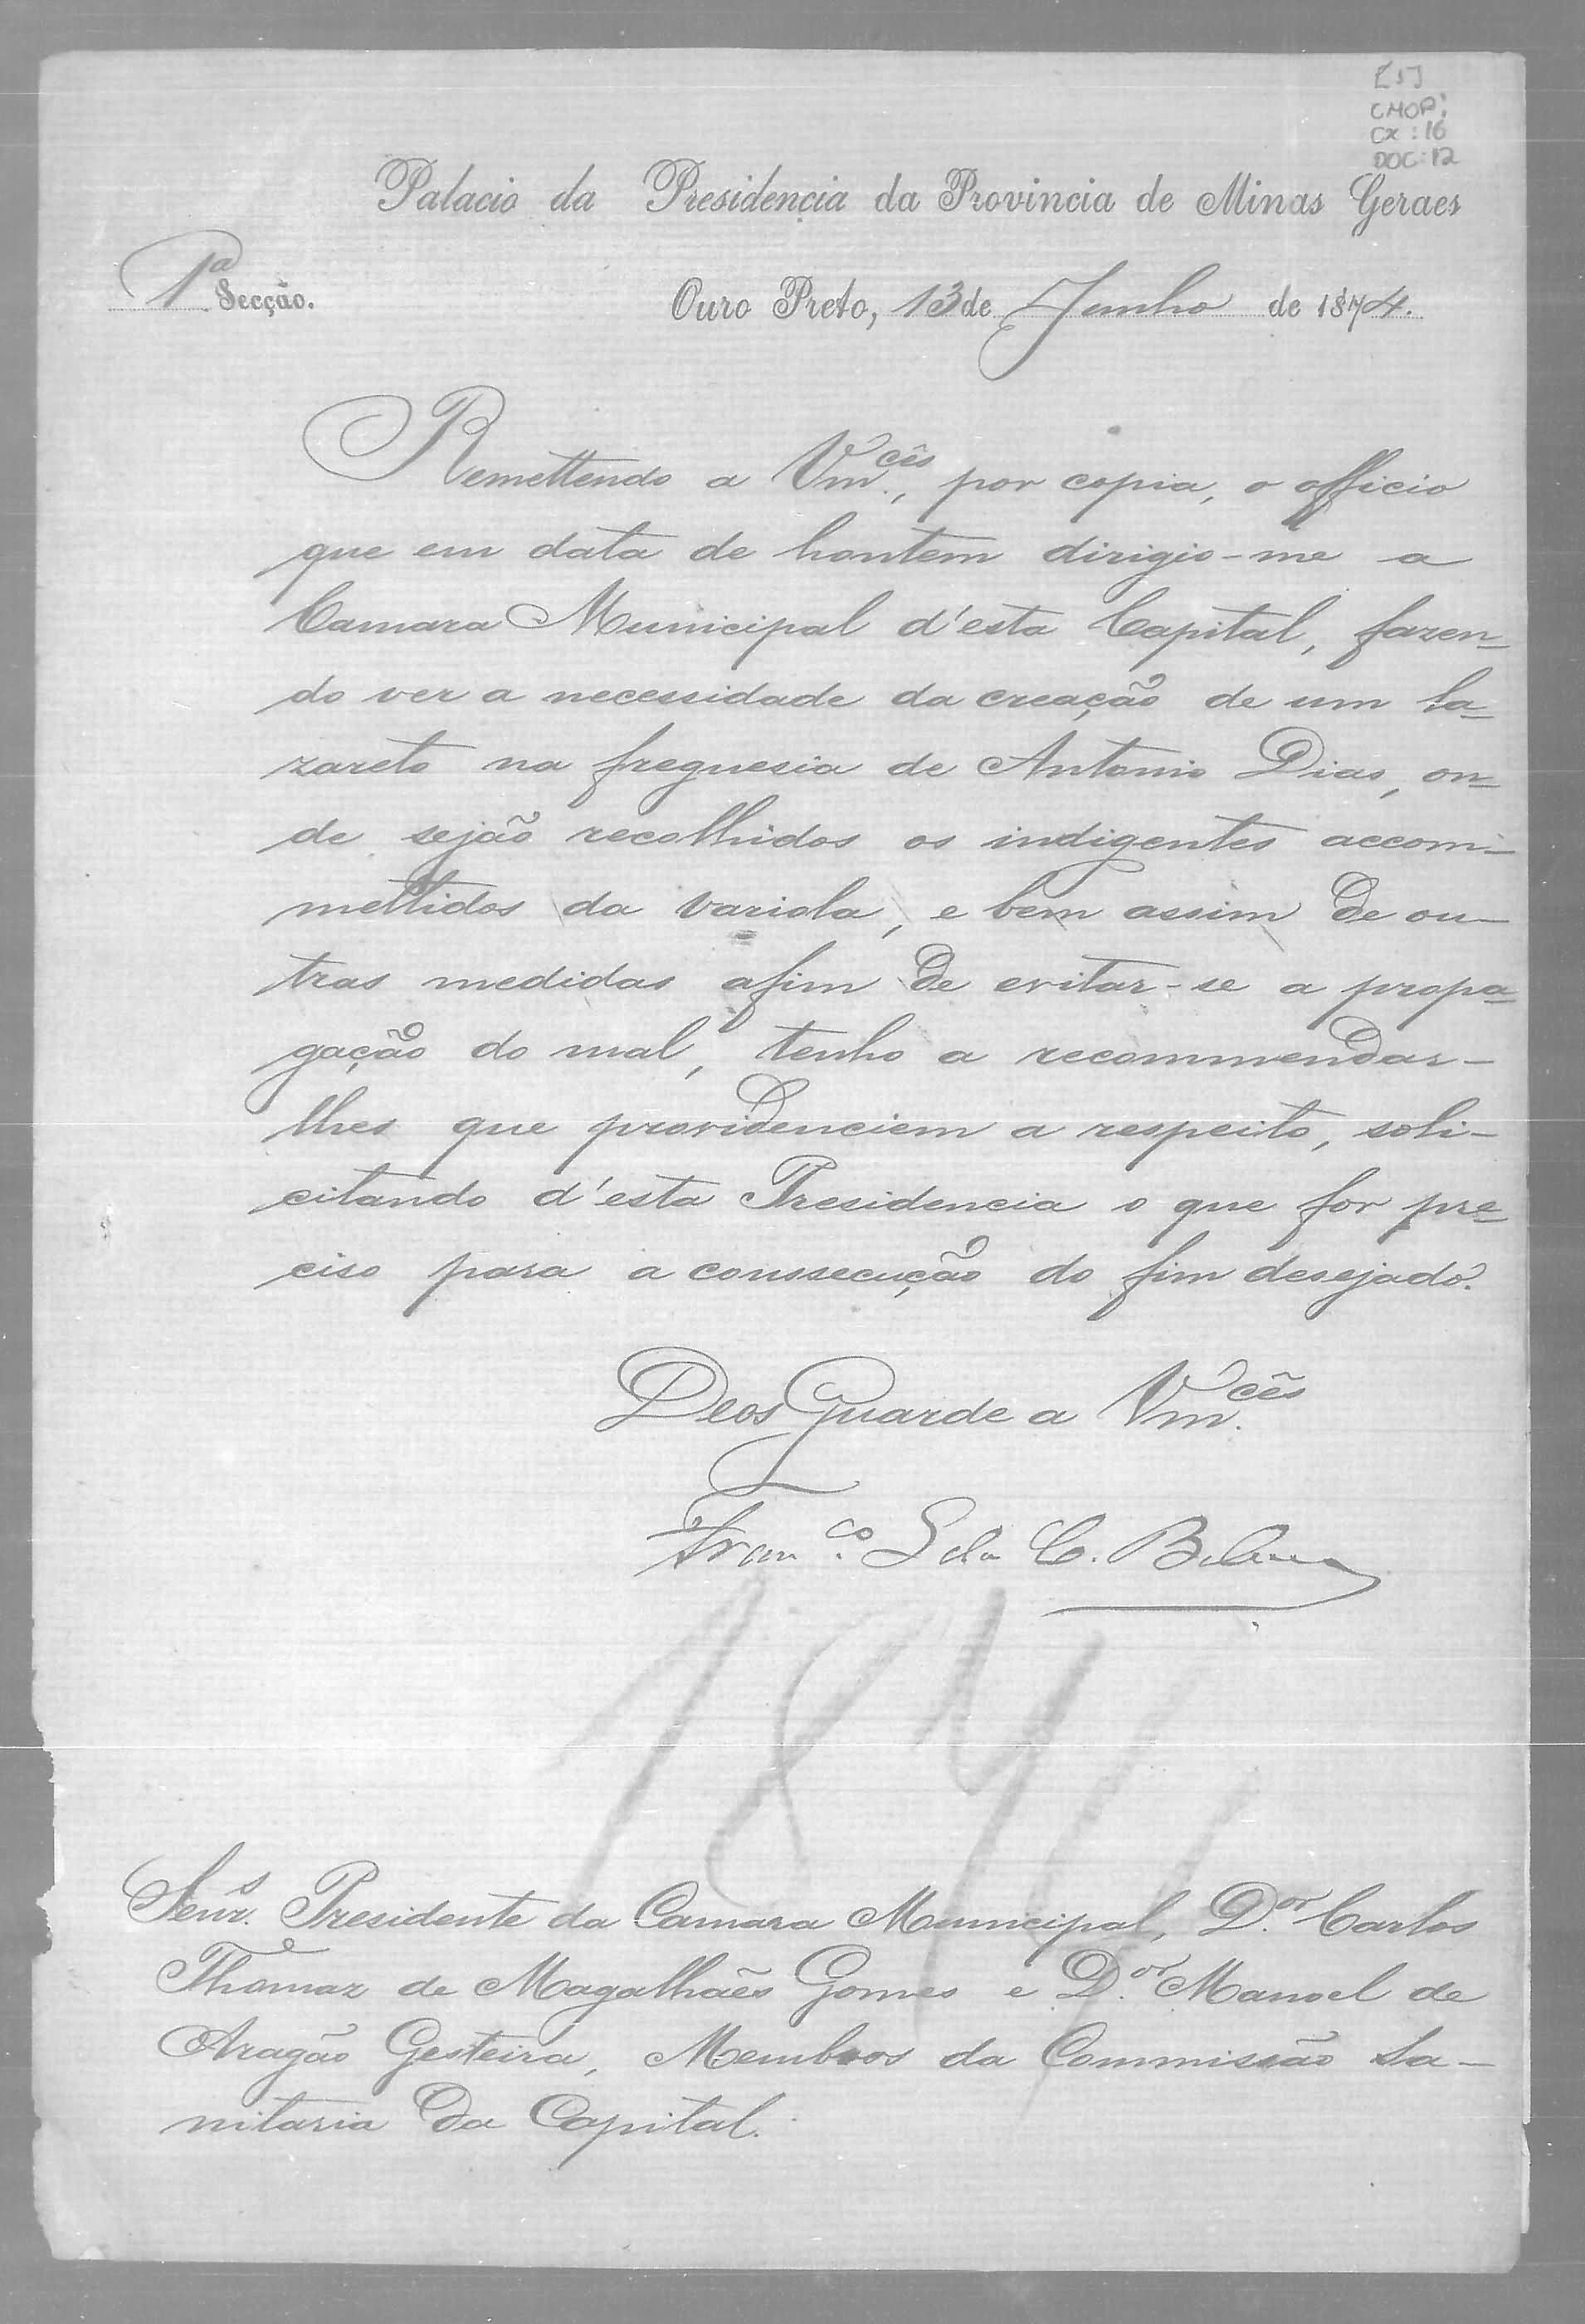 [5]
CMOP:
CX: 16
DOC: 12
Palacio da Presidencia da Provincia de Minas Geraes
1ª Secção.
Ouro Preto, 13 de Junho de 1874.
Remettendo a Vm.cês, por copia, o officio
que em data de hontem dirigio-me a
Camara Municipal d'esta Capital, fazen-
do ver a necessidade da creação de um la-
zareto na freguesia de Antonio Dias, on-
de sejão recolhidos os indigentes accom-
mettidos da variola, e bem assim de ou-
tras medidas afim de evitar-se a propa-
gação do mal, tenho a recommendar-
lhes que providenciem a respeito, soli-
citando d'esta Presidencia o que for pre-
ciso para a conssecução do fim desejado.
Deos Guarde a Vm.cês
Fran.co L da C. B
187
Senr.s Presidente da Camara Municipal, D.or Carlos
Thomaz de Magalhães Gomes e D.or Manoel de
Aragão Gesteira, Membros da Commissão Sa-
nitaria da Capital.